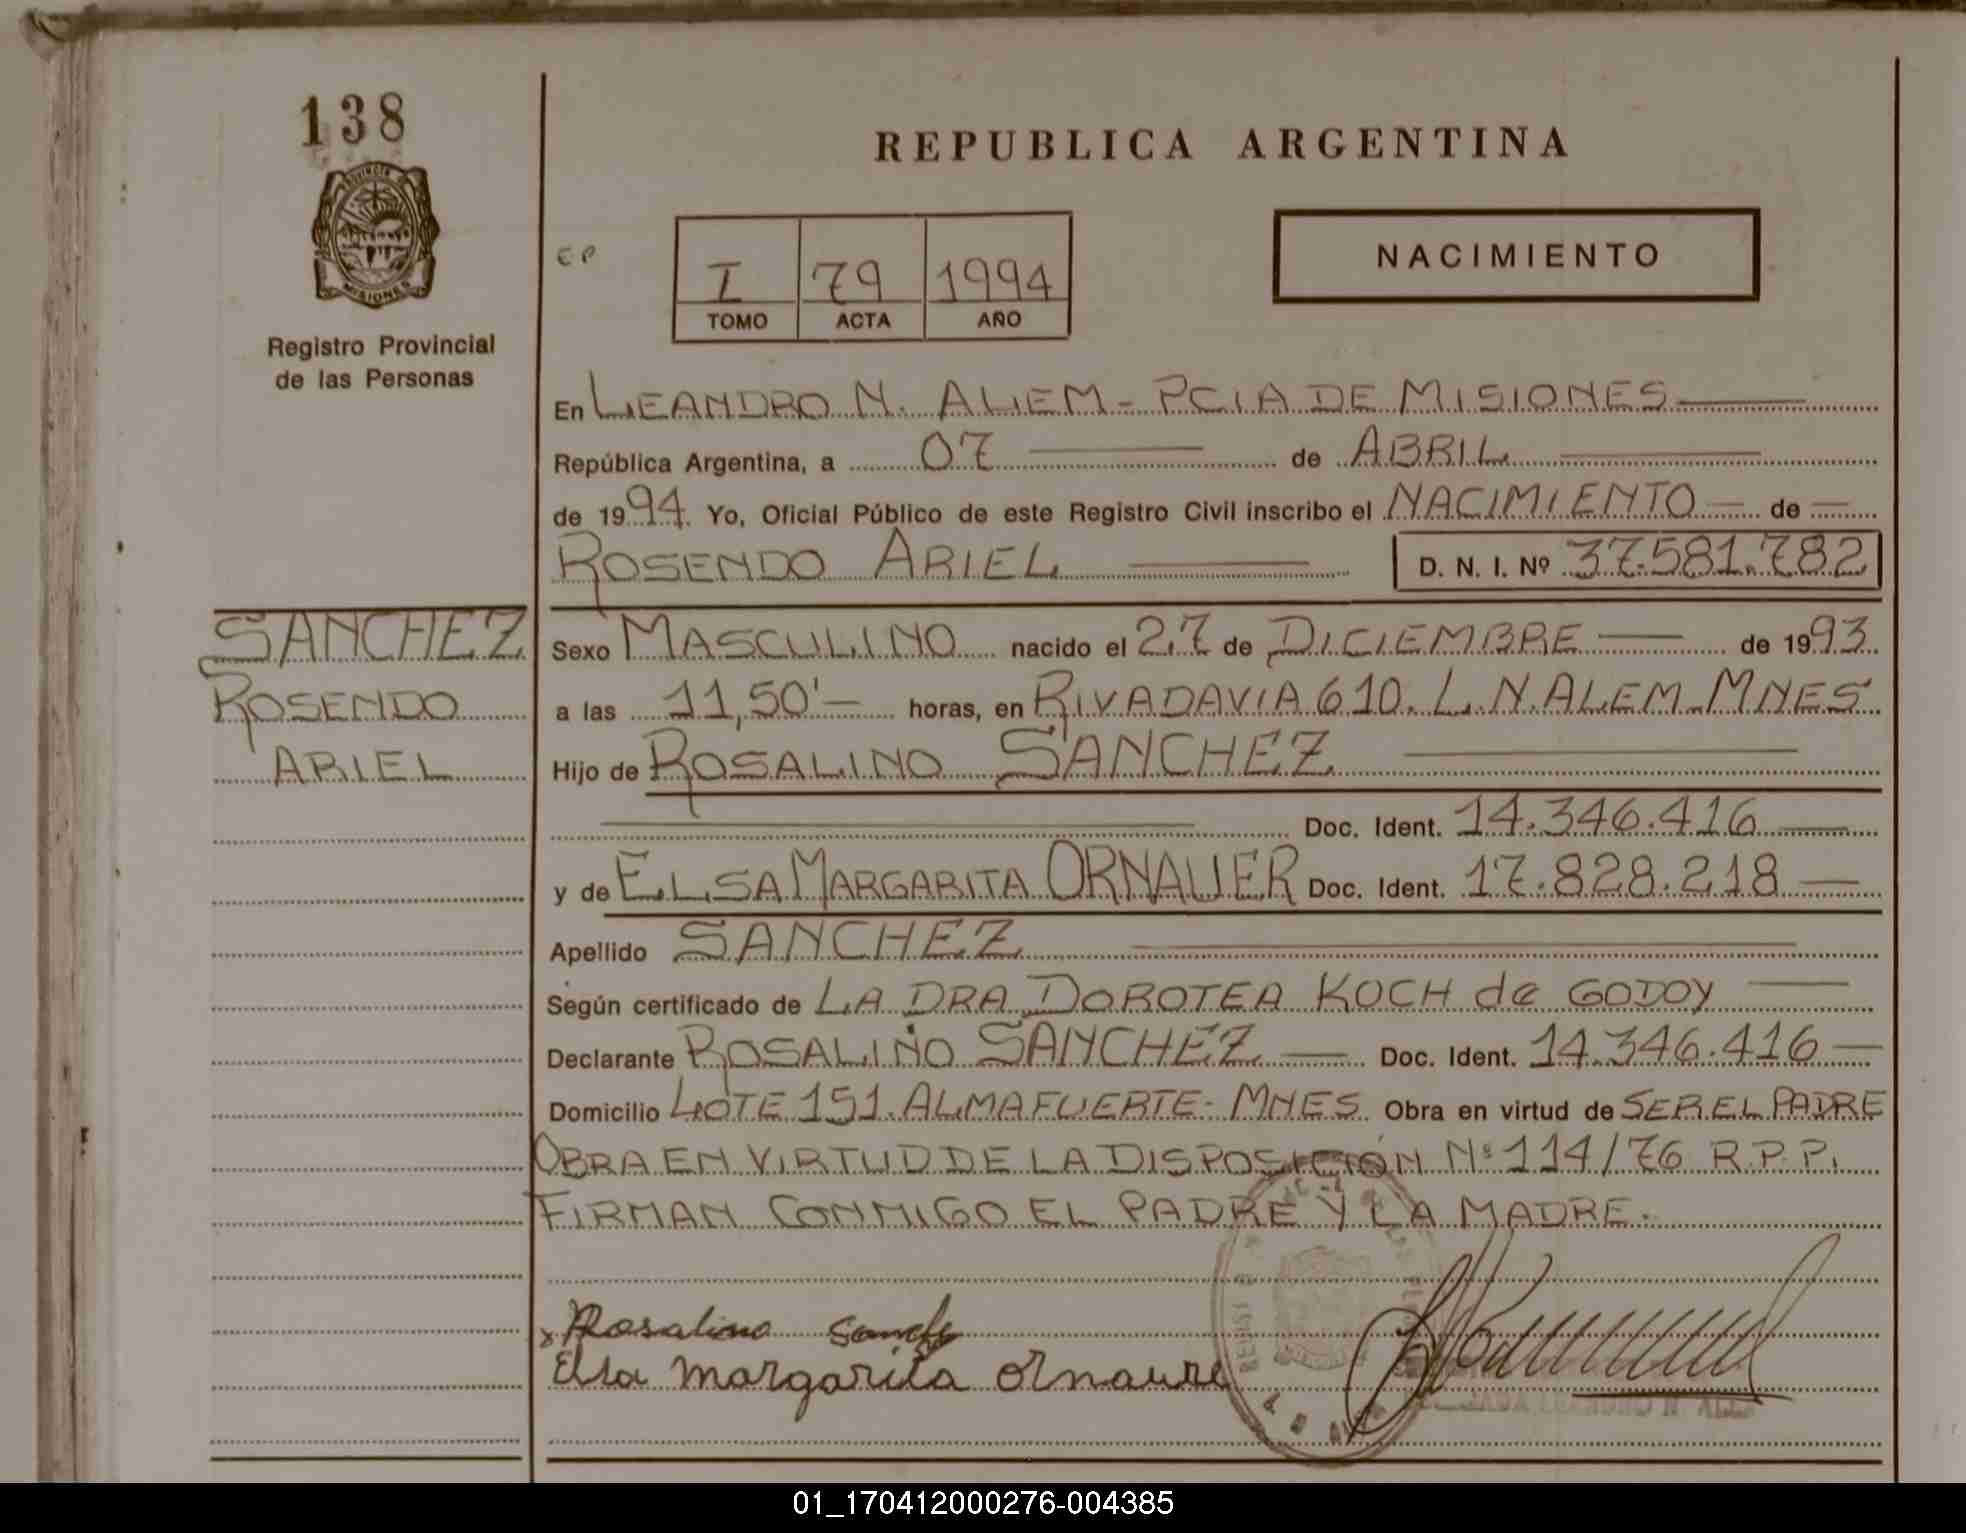 138
PROVINCIA DE
MISIONES
Registro Provincial
de las Personas
SANCHEZ
ROSENDO
ARIEL
REPUBLICA ARGENTINA
EP
I 79 1994
TOMO ACTA AÑO
NACIMIENTO
En LEANDRO N. ALEM - PCIA DE MISIONES
República Argentina, a 07 de ABRIL
de 1994. Yo, Oficial Público de este Registro Civil inscribo el NACIMIENTO de
ROSENDO ARIEL D. N. I. Nº 37.581.782
Sexo MASCULINO nacido el 27 de DICIEMBRE de 1993
a las 11,50'- horas, en RIVADAVIA 610. L. N. ALEM. MNES
Hijo de ROSALINO SANCHEZ
Doc. Ident. 14.346.416
y de ELSA MARGARITA ORNAUER Doc. Ident. 17.828.218
Apellido SANCHEZ
Según certificado de LA DRA DOROTEA KOCH de GODOY
Declarante ROSALINO SANCHEZ Doc. Ident. 14.346.416
Domicilio LOTE 151. ALMAFUERTE - MNES Obra en virtud de SER EL PADRE
OBRA EN VIRTUD DE LA DISPOSICIÓN Nº 114/76 R.P.P.
FIRMAN CONMIGO EL PADRE Y LA MADRE.
x Rosalino
Elsa Margarita Ornaure
01_170412000276-004385